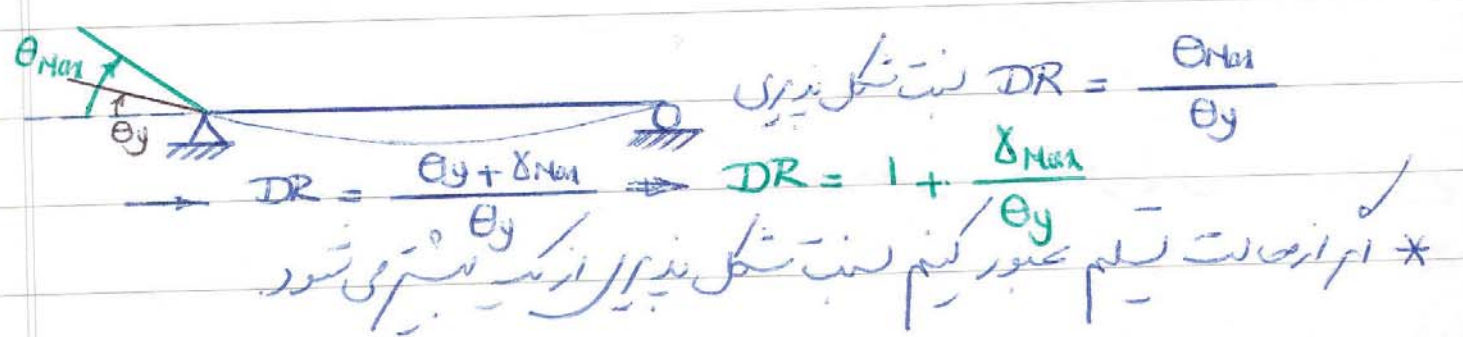 θMax
θy
نسبت شکل پذیری DR = θMax / θy
→ DR = (θy + γMax) / θy ⇒ DR = 1 + γMax / θy
* اگر از حالت تسلیم عبور کنیم نسبت شکل پذیری از یک بیشتر می شود.